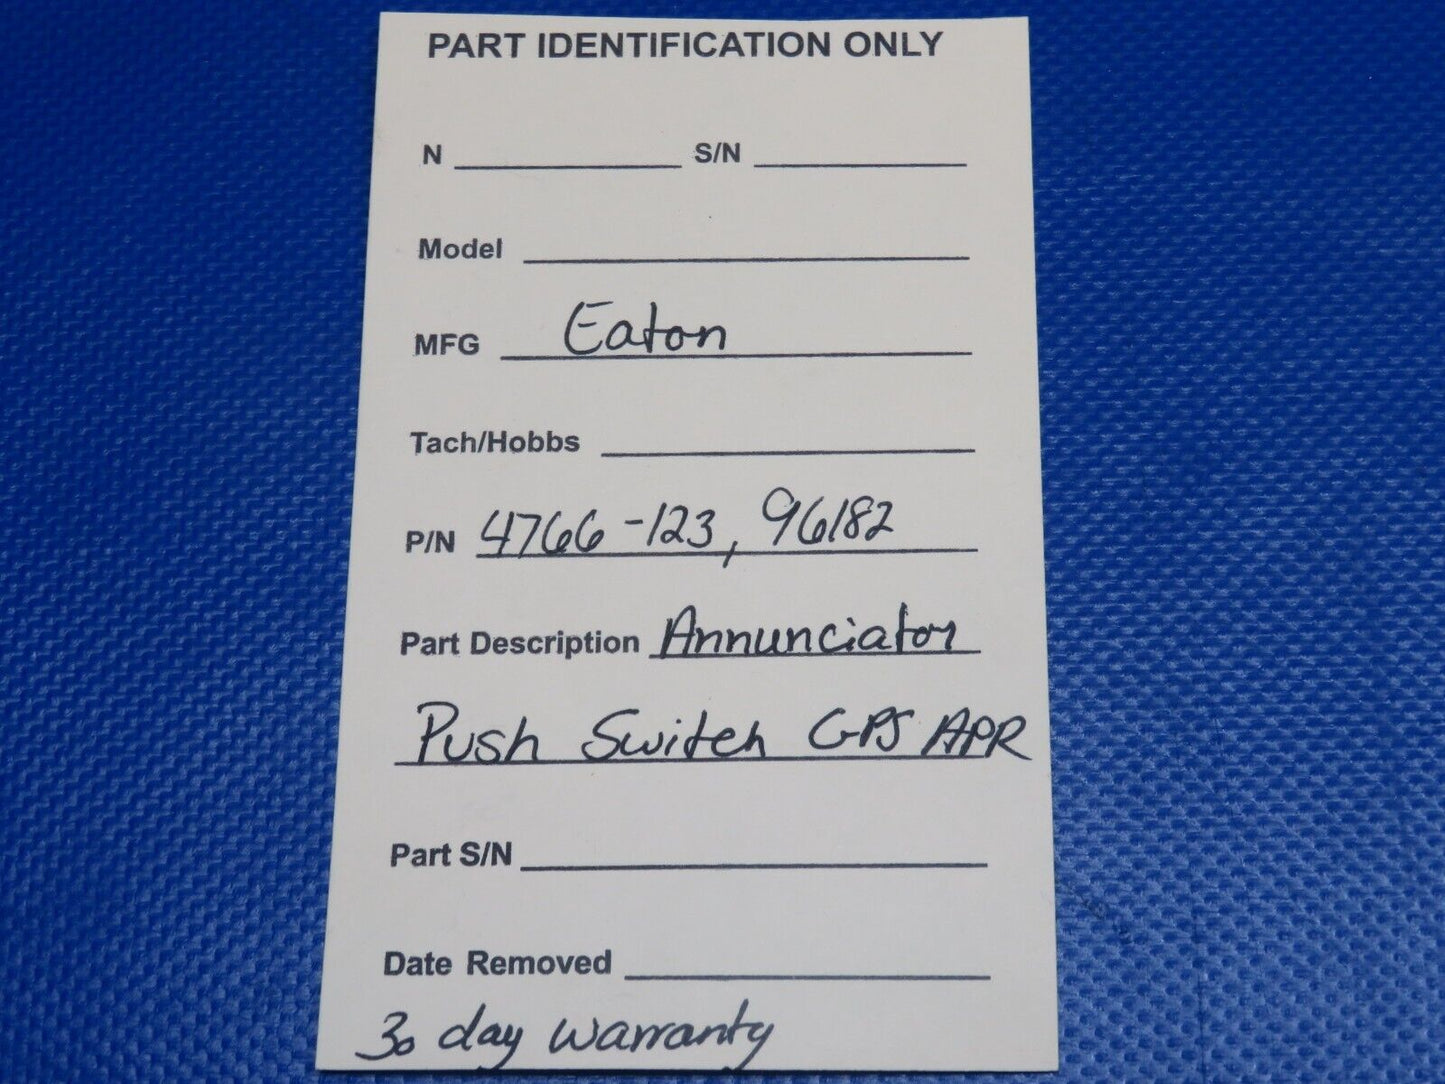 PART IDENTIFICATION ONLY
N S/N
Model
MFG Eaton
Tach/Hobbs
P/N 4766-123, 96182
Part Description Annunciator
Push Switch GPS APR
Part S/N
Date Removed
30 day warranty